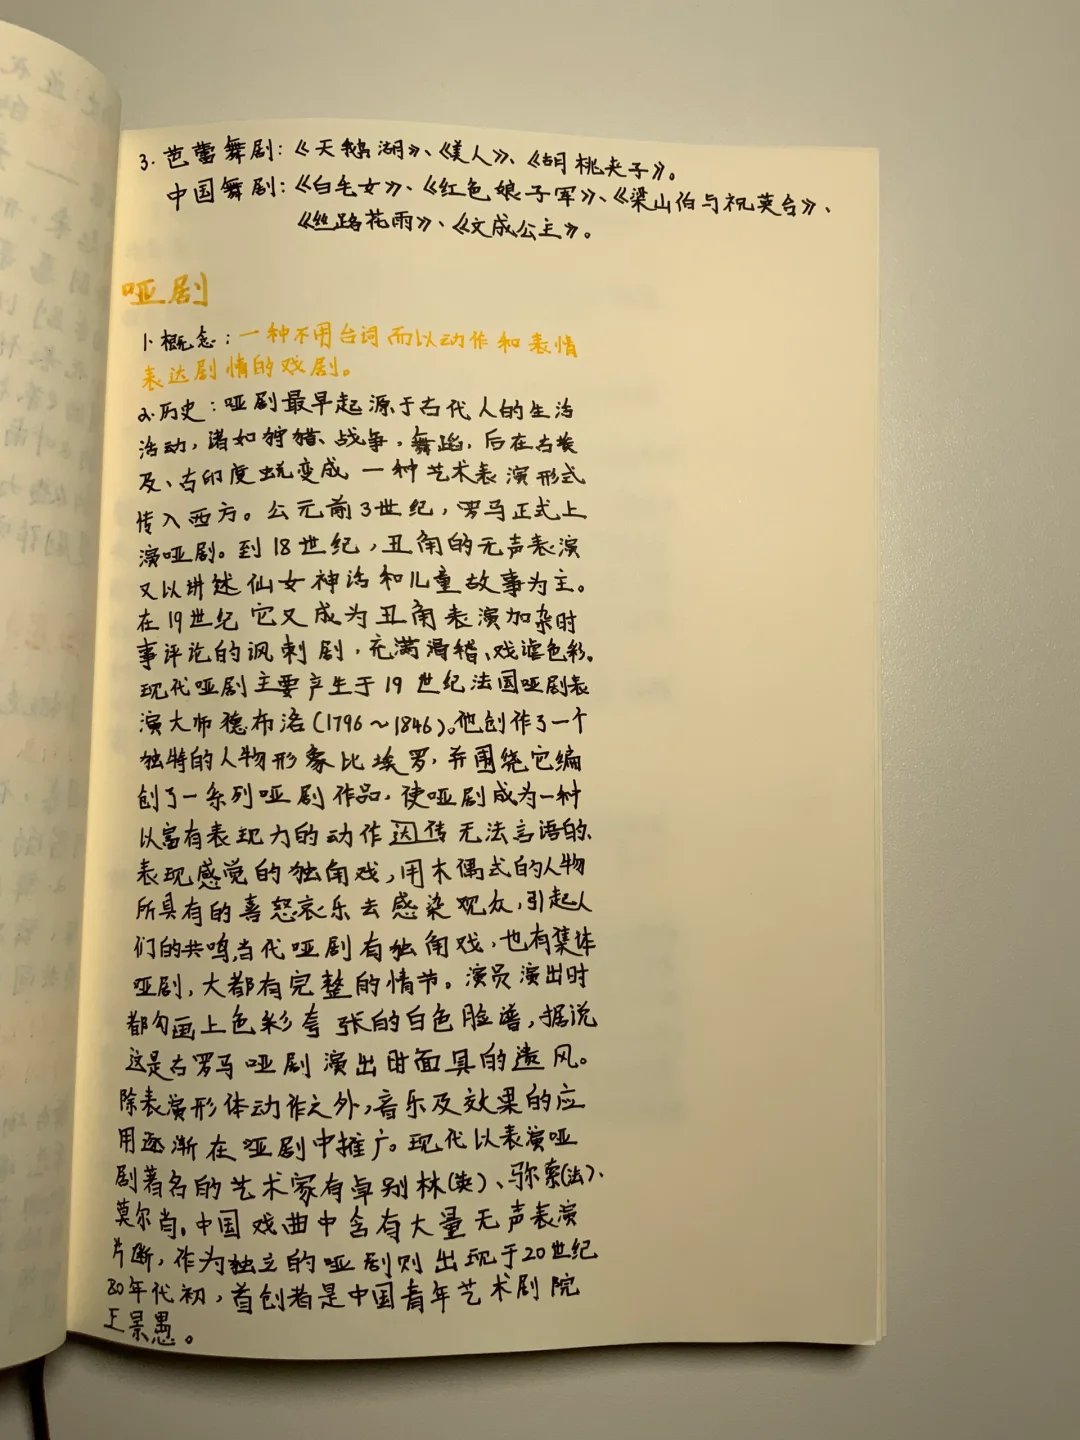 3. 芭蕾舞剧:《天鹅湖》、《美人》、《胡桃夹子》。
中国舞剧:《白毛女》、《红色娘子军》、《梁山伯与祝英台》、
《丝路花雨》、《文成公主》。
哑剧
1. 概念:一种不用台词而以动作和表情
表达剧情的戏剧。
2. 历史:哑剧最早起源于古代人的生活
活动,诸如狩猎、战争,舞蹈,后在古埃
及、古印度蜕变成一种艺术表演形式
传入西方。公元前3世纪,罗马正式上
演哑剧。到18世纪,丑角的无声表演
又以讲述仙女神话和儿童故事为主。
在19世纪它又成为丑角表演加杂时
事评论的讽刺剧,充满滑稽、戏谑色彩。
现代哑剧主要产生于19世纪法国哑剧表
演大师德布洛(1796~1846)。他创作了一个
独特的人物形象比埃罗,并围绕它编
创了一系列哑剧作品,使哑剧成为一种
以富有表现力的动作因传无法言语的
表现感觉的独角戏,用木偶式的人物
所具有的喜怒哀乐去感染观众,引起人
们的共鸣,当代哑剧有独角戏,也有集体
哑剧,大都有完整的情节。演员演出时
都勾画上色彩夸张的白色脸谱,据说
这是古罗马哑剧演出时面具的遗风。
除表演形体动作之外,音乐及效果的应
用逐渐在哑剧中推广。现代以表演哑
剧著名的艺术家有卓别林(英)、马尔索(法)、
莫尔肖。中国戏曲中含有大量无声表演
片断,作为独立的哑剧则出现于20世纪
80年代初,首创者是中国青年艺术剧院
王景愚。